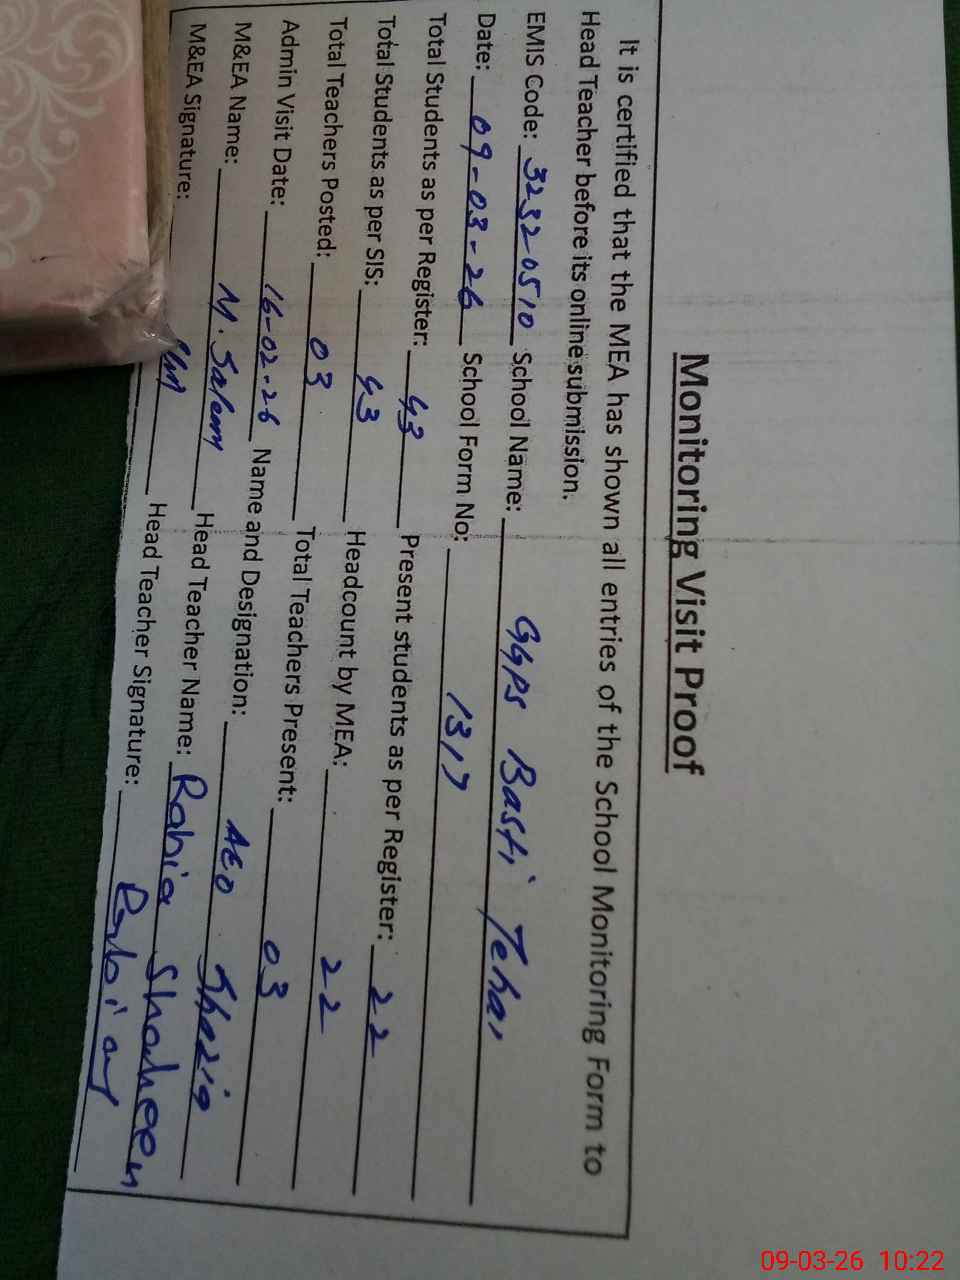 Monitoring Visit Proof
It is certified that the MEA has shown all entries of the School Monitoring Form to
Head Teacher before its online submission.
EMIS Code: 32320510 School Name: GGPS Basti Tehai
Date: 09-03-26 School Form No: 1317
Total Students as per Register: 43 Present students as per Register: 22
Total Students as per SIS: 43 Headcount by MEA: 22
Total Teachers Posted: 03 Total Teachers Present: 03
Admin Visit Date: 16-02-26 Name and Designation: AEO Shazia
M&EA Name: M. Saleem Head Teacher Name: Rabia Shaheen
M&EA Signature: Head Teacher Signature: Rabia
09-03-26 10:22